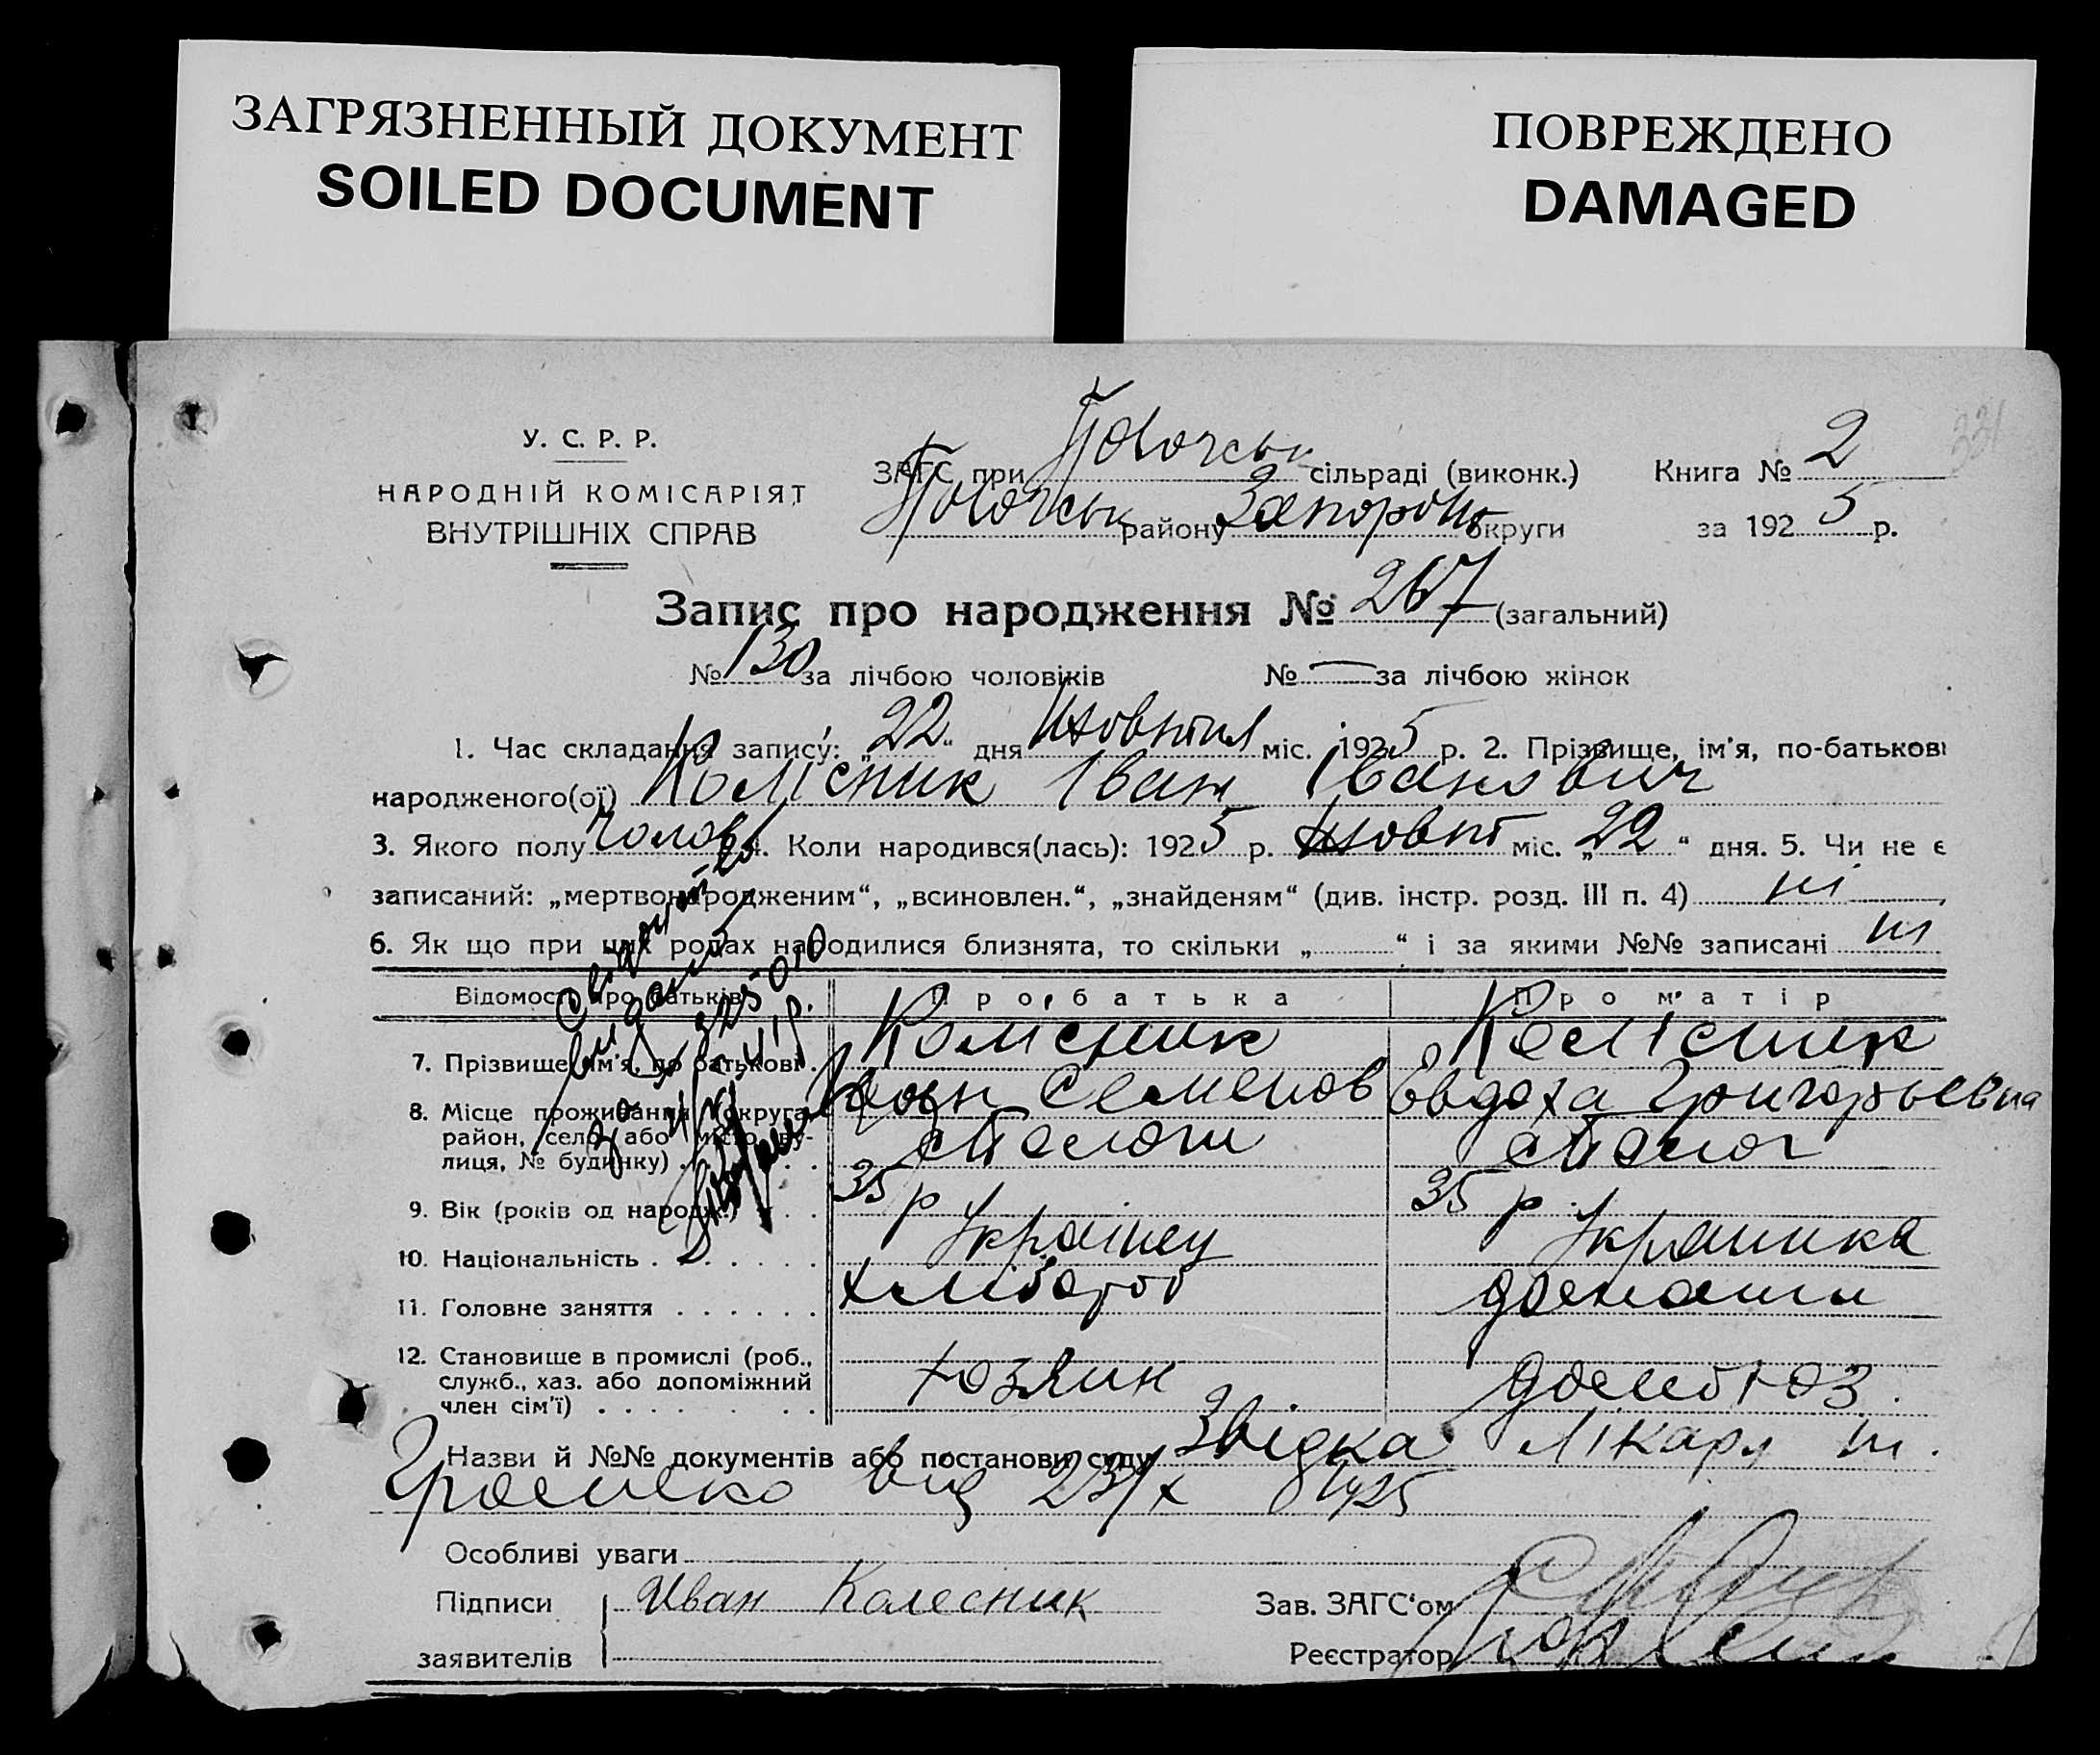 ЗАГРЯЗНЕННЫЙ ДОКУМЕНТ
SOILED DOCUMENT
ПОВРЕЖДЕНО
DAMAGED
У. С. Р. Р.
НАРОДНІЙ КОМІСАРІЯТ
ВНУТРІШНІХ СПРАВ
ЗАГС при сільраді (виконк.) Книга № 2
району округи за 1925 р.
Запис про народження № 267 (загальний)
№ 130 за лічбою чоловіків № — за лічбою жінок
1. Час складання запису: „22“ дня Жовтня міс. 1925 р. 2. Прізвище, ім'я, по-батькові
народженого(ої) Колісник Іван Іванович
3. Якого полу чолов 4. Коли народився(лась): 1925 р. Жовт міс. „22“ дня. 5. Чи не є
записаний: „мертвонародженим“, „всиновлен.“, „знайденям“ (див. інстр. розд. III п. 4) ні
6. Як що при цих родах народилися близнята, то скільки „ “ і за якими №№ записані ні
Відомості про батьків Про батька Про матір
7. Прізвище, ім'я, по батькові Колісник Колісник
Іван Семенов Євдоха Григорьевна
8. Місце проживання (округа,
район, село або місто, ву-
лиця, № будинку)
9. Вік (років од народж.) 35 р 35 р.
10. Національність Українец Украинка
11. Головне заняття хлібороб
12. Становище в промислі (роб.,
служб., хаз. або допоміжний
член сім'ї) хозяин
Назви й №№ документів або постанови суду Звідка Лікаря
від 23/X 1925
Особливі уваги
Підписи Иван Колесник Зав. ЗАГС'ом
заявителів Реєстратор